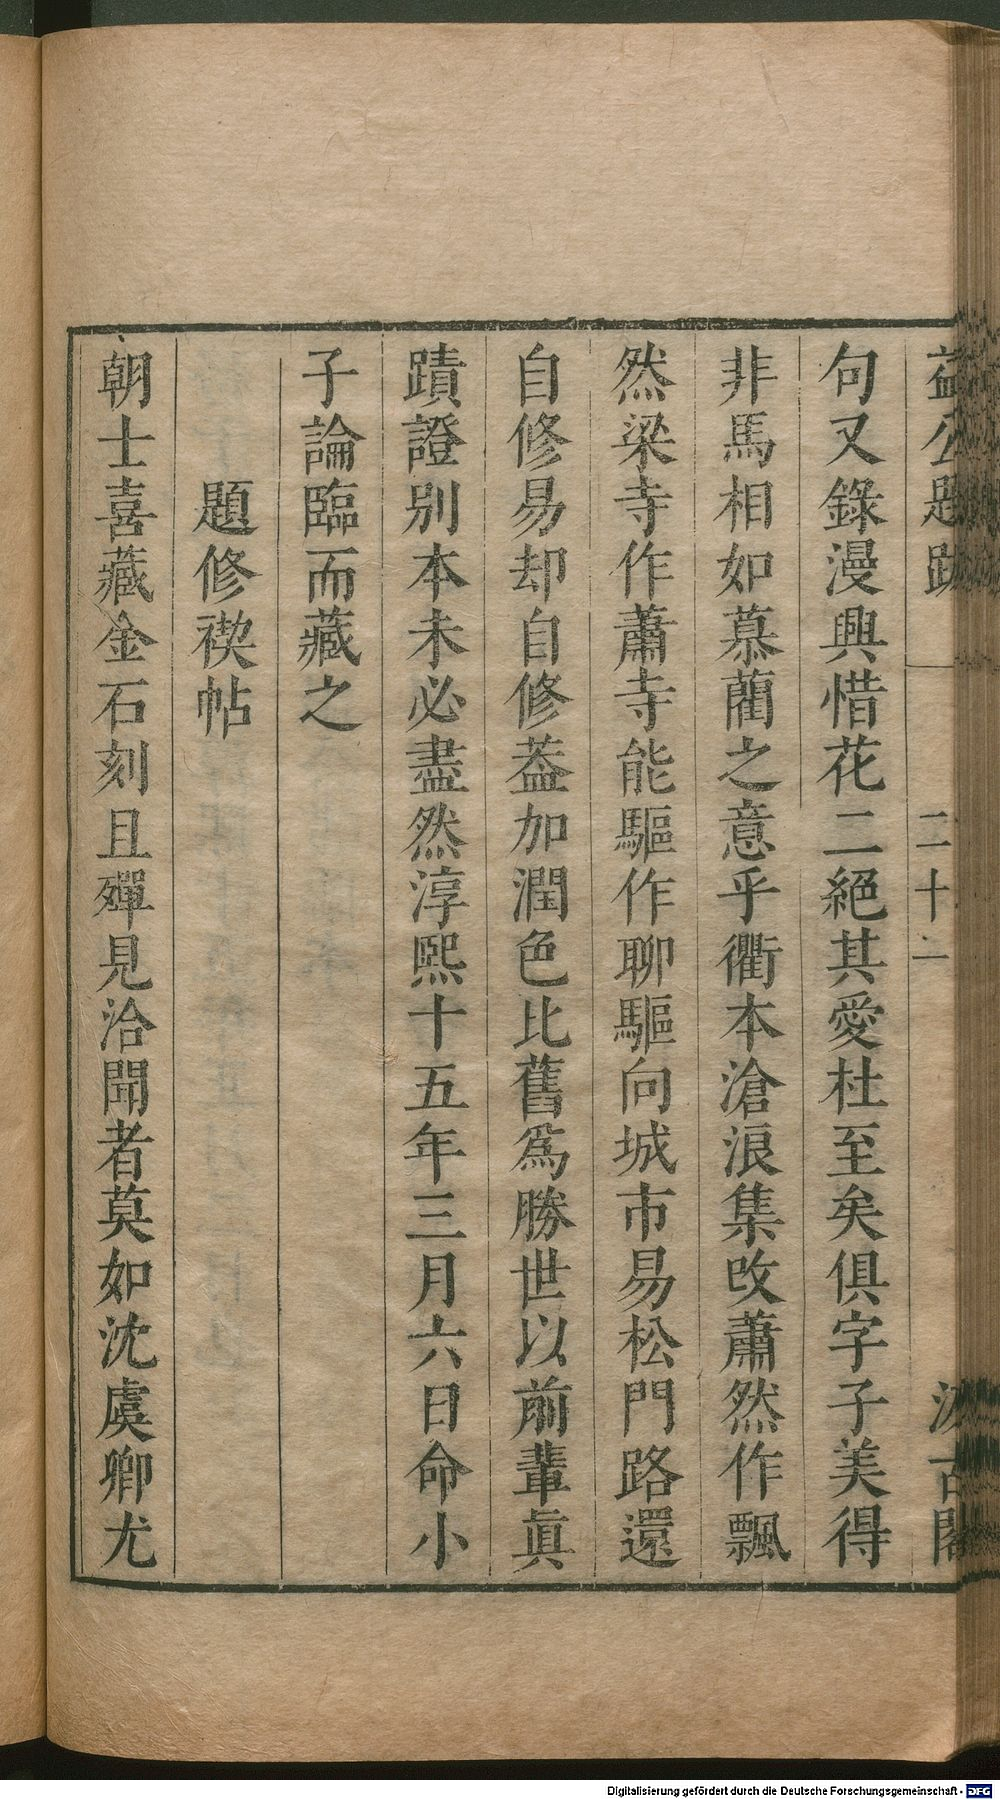 益公題跋 二十二 汲古閣
句又錄漫興惜花二絕其愛杜至矣俱字子美得
非馬相如慕藺之意乎衢本滄浪集改蕭然作飄
然梁寺作蕭寺能驅作聊驅向城市易松門路還
自修易却自修葢加潤色比舊爲勝世以前輩眞
蹟證别本未必盡然淳熙十五年三月六日命小
子論臨而藏之
題修禊帖
朝士喜藏金石刻且殫見洽聞者莫如沈虞卿尤
Digitalisierung gefördert durch die Deutsche Forschungsgemeinschaft - DFG